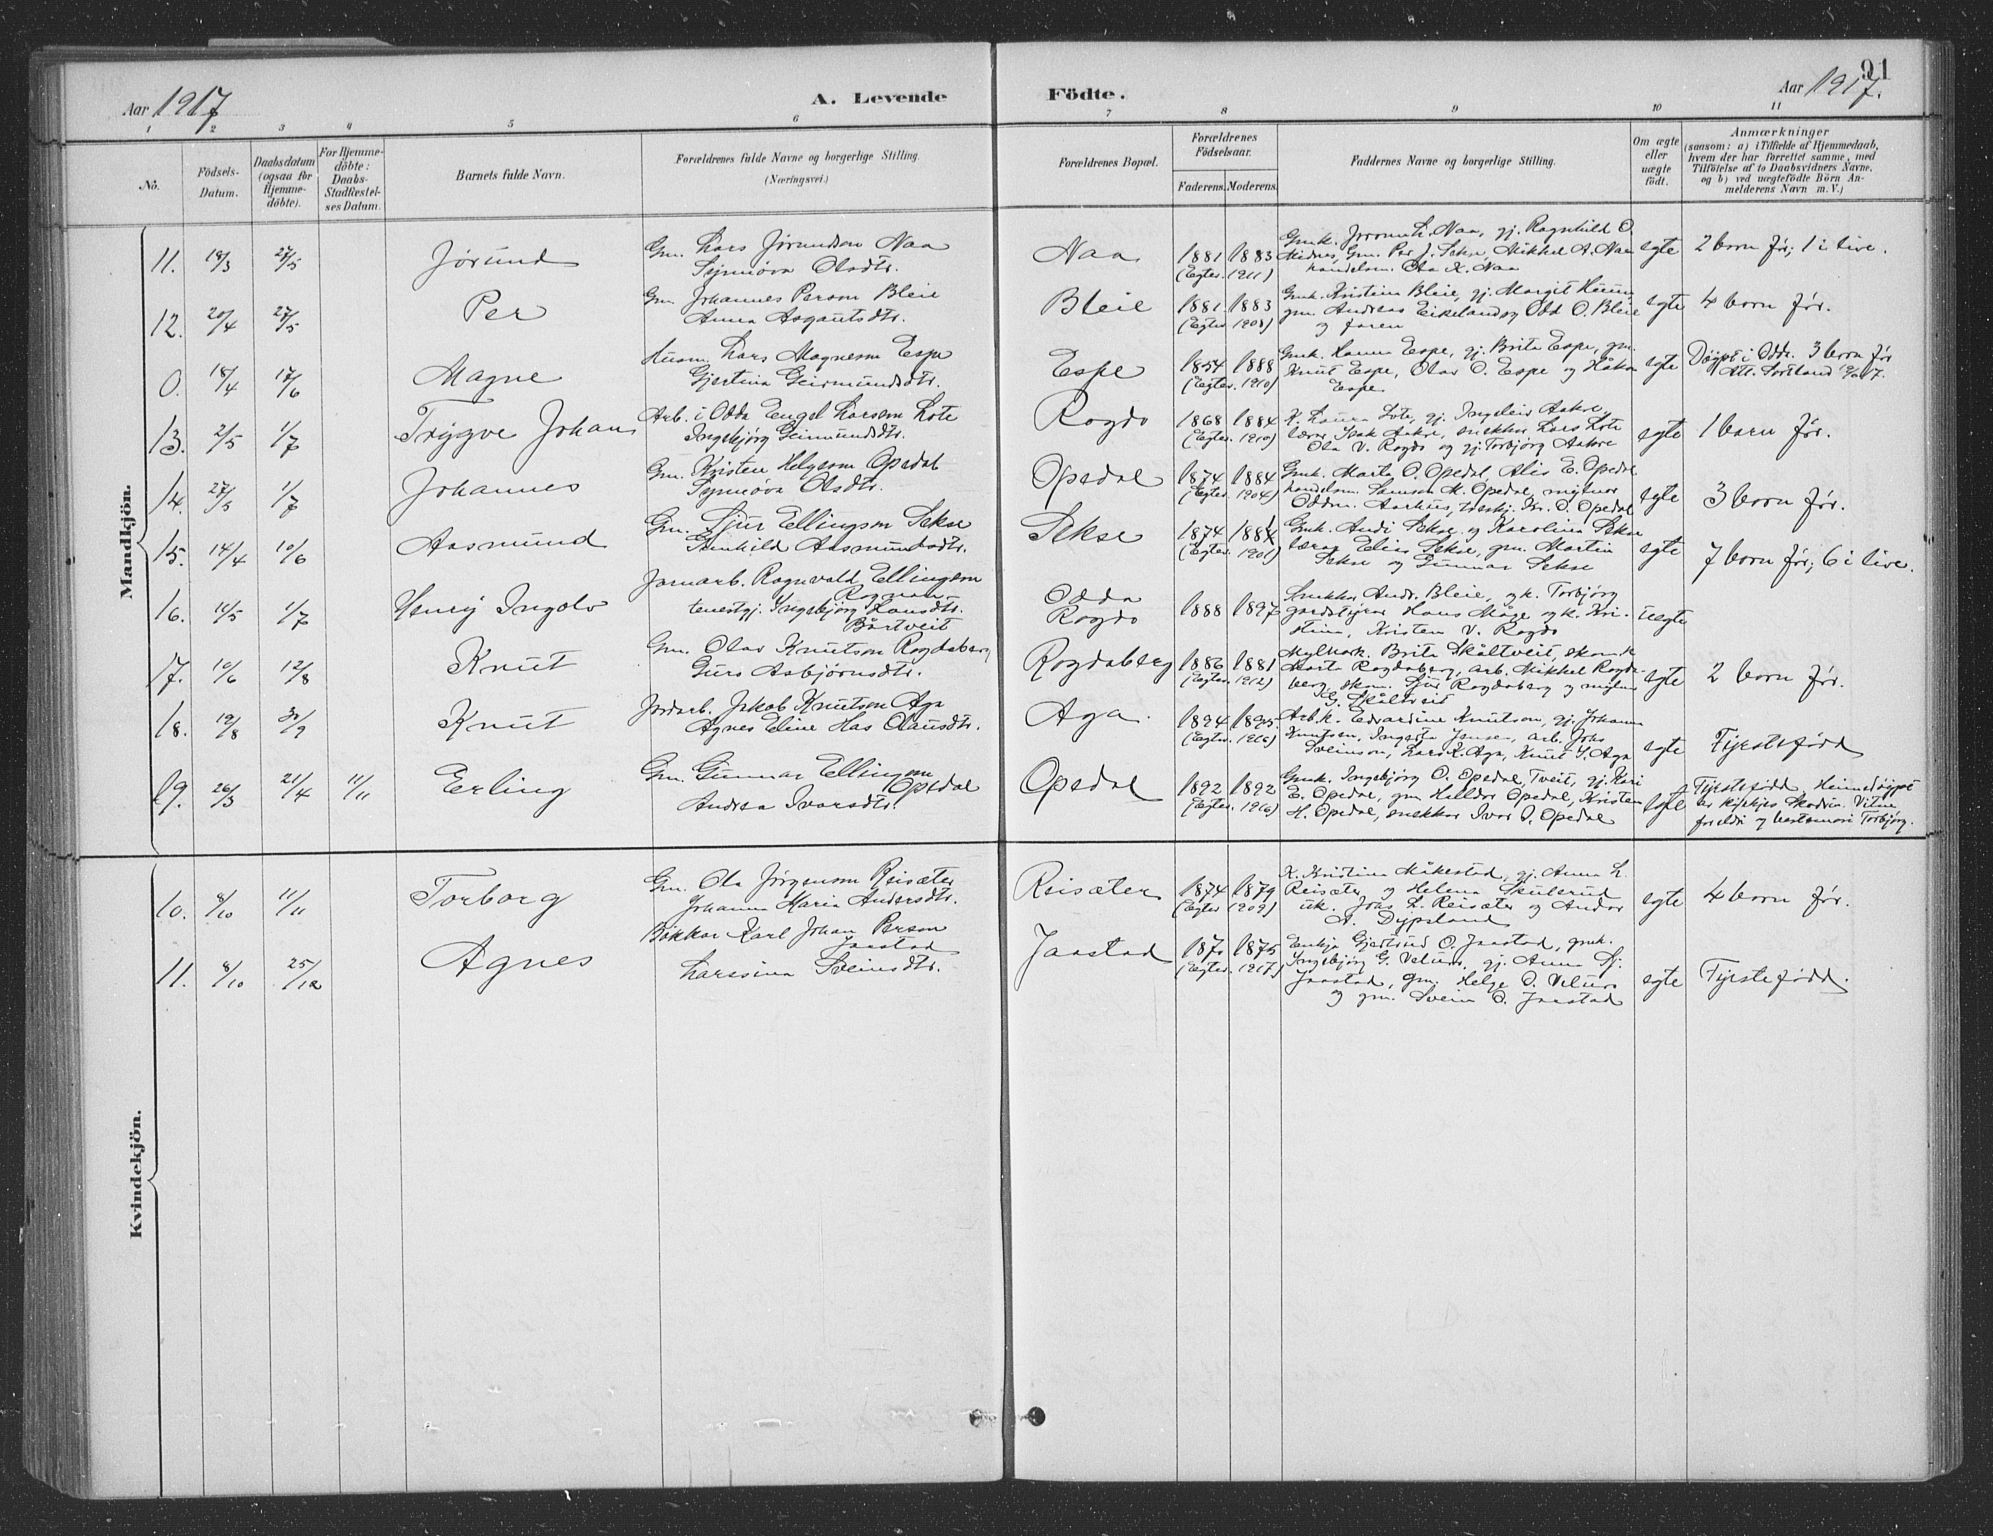 91
Aar 1917
A. Levende
Födte.
Aar 1917.
1 2 3 4 5 6 7 8 9 10 11
No.
Födsels-
Datum.
Daabsdatum
(ogsaa för
Hjemme-
döbte).
For Hjemme-
döbte:
Daabs-
Stadfæstel-
ses Datum.
Barnets fulde Navn.
Forældrenes fulde Navne og borgerlige Stilling.
(Næringsvei.)
Forældrenes Bopæl.
Forældrenes
Födselsaar.
Faderens. Moderens.
Faddernes Navne og borgerlige Stilling.
Om ægte
eller
uægte
födt.
Anmærkninger
(saasom: a) i Tilfælde af Hjemmedaab,
hvem der har forrettet samme, med
Tilföielse af to Daabsvidners Navne,
og b) ved uægtefödte Börn An-
melderens Navn m. V.)
Mandkjön.
11. 18/3 27/5 Jørund
Gm. Lars Jørundson Naa
Synnøva Olsdtr.
Naa 1881 1883
(Egter. 1911)
egte 2 born før, 1 i live.
12. 20/4 27/5 Per
Gm. Johannes Person Bleie
Anna Asgautsdtr.
Bleie 1881 1883
(Egter 1908)
Gmk. Kristina Bleie, gj. Margit
gm. Andreas Eikeland og Odd O. Bleie
og faren
egte 4 born før.
0. 18/4 17/6 Magne
Husm. Lars Magneson Espe
Gjertina Geirmundsdtr.
Espe 1854 1888
(Egter. 1910)
Gmk. Hanna Espe, gj. Brita Espe, gm.
Knut Espe, Olav O. Espe og Håkon
Espe.
egte Døypt i Odda. 3 born før
13. 2/5 1/7 Trygve Johan
Arb. i Odda Engel Larsson Lote
Ingebjørg Geirmundsdtr.
Rogdo 1868 1884
(Egter. 1910)
lærar Isak Aakre, snekkar Lars Lote
Ola V. Rogdo og gj. Torbjørg Aakre
egte 1 barn før.
14. 27/5 1/7 Johannes
Gm. Kristen Helgeson Opedal
Synnøva Olsdtr.
Opedal 1874 1884
(Egter. 1904)
Gmk. Marta O. Opedal, Alis E. Opedal
handelsm. Samson M. Opedal,
Oddm. Aarhus, O. Opedal
egte 3 born før.
15. 14/4 10/6 Aasmund
Gm. Sjur Ellingson Sekse
Gunhild Aasmundsdtr.
Sekse 1874 1881
(Egter. 1901)
Gmk. Andi Sekse og Karolina Sekse
lærar Elias Sekse, gm. Martin
Sekse og Gunnar Sekse
egte 7 born før, 6 i live.
16. 11/5 1/7 Henry Ingolv
Jarnarb. Rognvald Ellingson
Rognan
tenestgj. Ingebjørg Hansdtr.
Børtveit
Odda
Rogdo 1888 1897
Snekkar Andr. Bleie, gk. Torbjørg
gardstyrar Hans Måge og k. Kri-
stina, Kristen V. Rogdo
uegte
17. 10/6 12/8 Knut
Gm. Olav Knutson Rogdaberg
Guro Asbjørnsdtr.
Rogdaberg 1886 1881
(Egter. 1912)
Brita Skåltveit,
Marta Rogdaberg, arb. Mikkel Rogda-
berg, skom. Sjur Rogdaberg og
G. Skåltveit
egte 2 born før.
18. 19/8 30/9 Knut
Jordarb. Jakob Knutson Aga
Agnes Eline Has Olausdtr.
Aga. 1894 1895
(Egter. 1916)
Arb.k. Edvardine Knutson, gj. Johanna
Knutsen, Ingerta Jensen, arb. Johs
Sveinson, Lars K. Aga, Knut J. Aga
egte Fyrstefødd
19. 26/3 21/4 11/11 Erling
Gm. Gunnar Ellingson
Opedal
Andrea Ivarsdtr.
Opedal 1892 1892
(Egter. 1916)
Gmk. Ingebjørg O. Opedal, Tveit, gj. Kari
E. Opedal, gm Halldor Opedal, Kristen
H. Opedal, snekkar Ivar O. Opedal
egte Fyrstefødd, Heimedøypt
foreldri og Torbjørg.
Kvindekjön.
10. 8/10 11/11 Torborg
Gm. Ola Jørgenson Reisæter
Johanna Maria Andersdtr.
Reisæter 1874 1879
(Egter 1909)
K. Kristina Måkestad, gj. Anna L.
Reisæter, og Helena Skulerud
uk. Johs L. Reisæter og Andor
A. Dypsland
egte 4 born før.
11. 8/10 25/12 Agnes
Bøkkar Karl Johan Person
Jaastad
Larssina Sveinsdtr.
Jaastad 187 1875
(Egter. 1917)
Enkja Gjertrud O. Jaastad, gmk.
Ingebjørg G. Velure, gj. Anna Sj.
Jaastad, gm. Helge O. Velure
og gm. Svein O. Jaastad
egte Fyrstefødd.